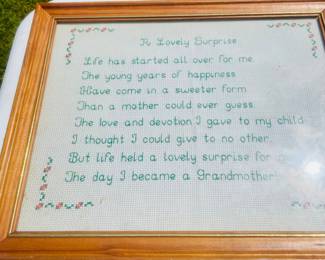 A Lovely Surprise
Life has started all over for me
The young years of happiness
Have come in a sweeter form
Than a mother could ever guess.
The love and devotion I gave to my child
I thought I could give to no other,
But life held a lovely surprise for
The day I became a Grandmother